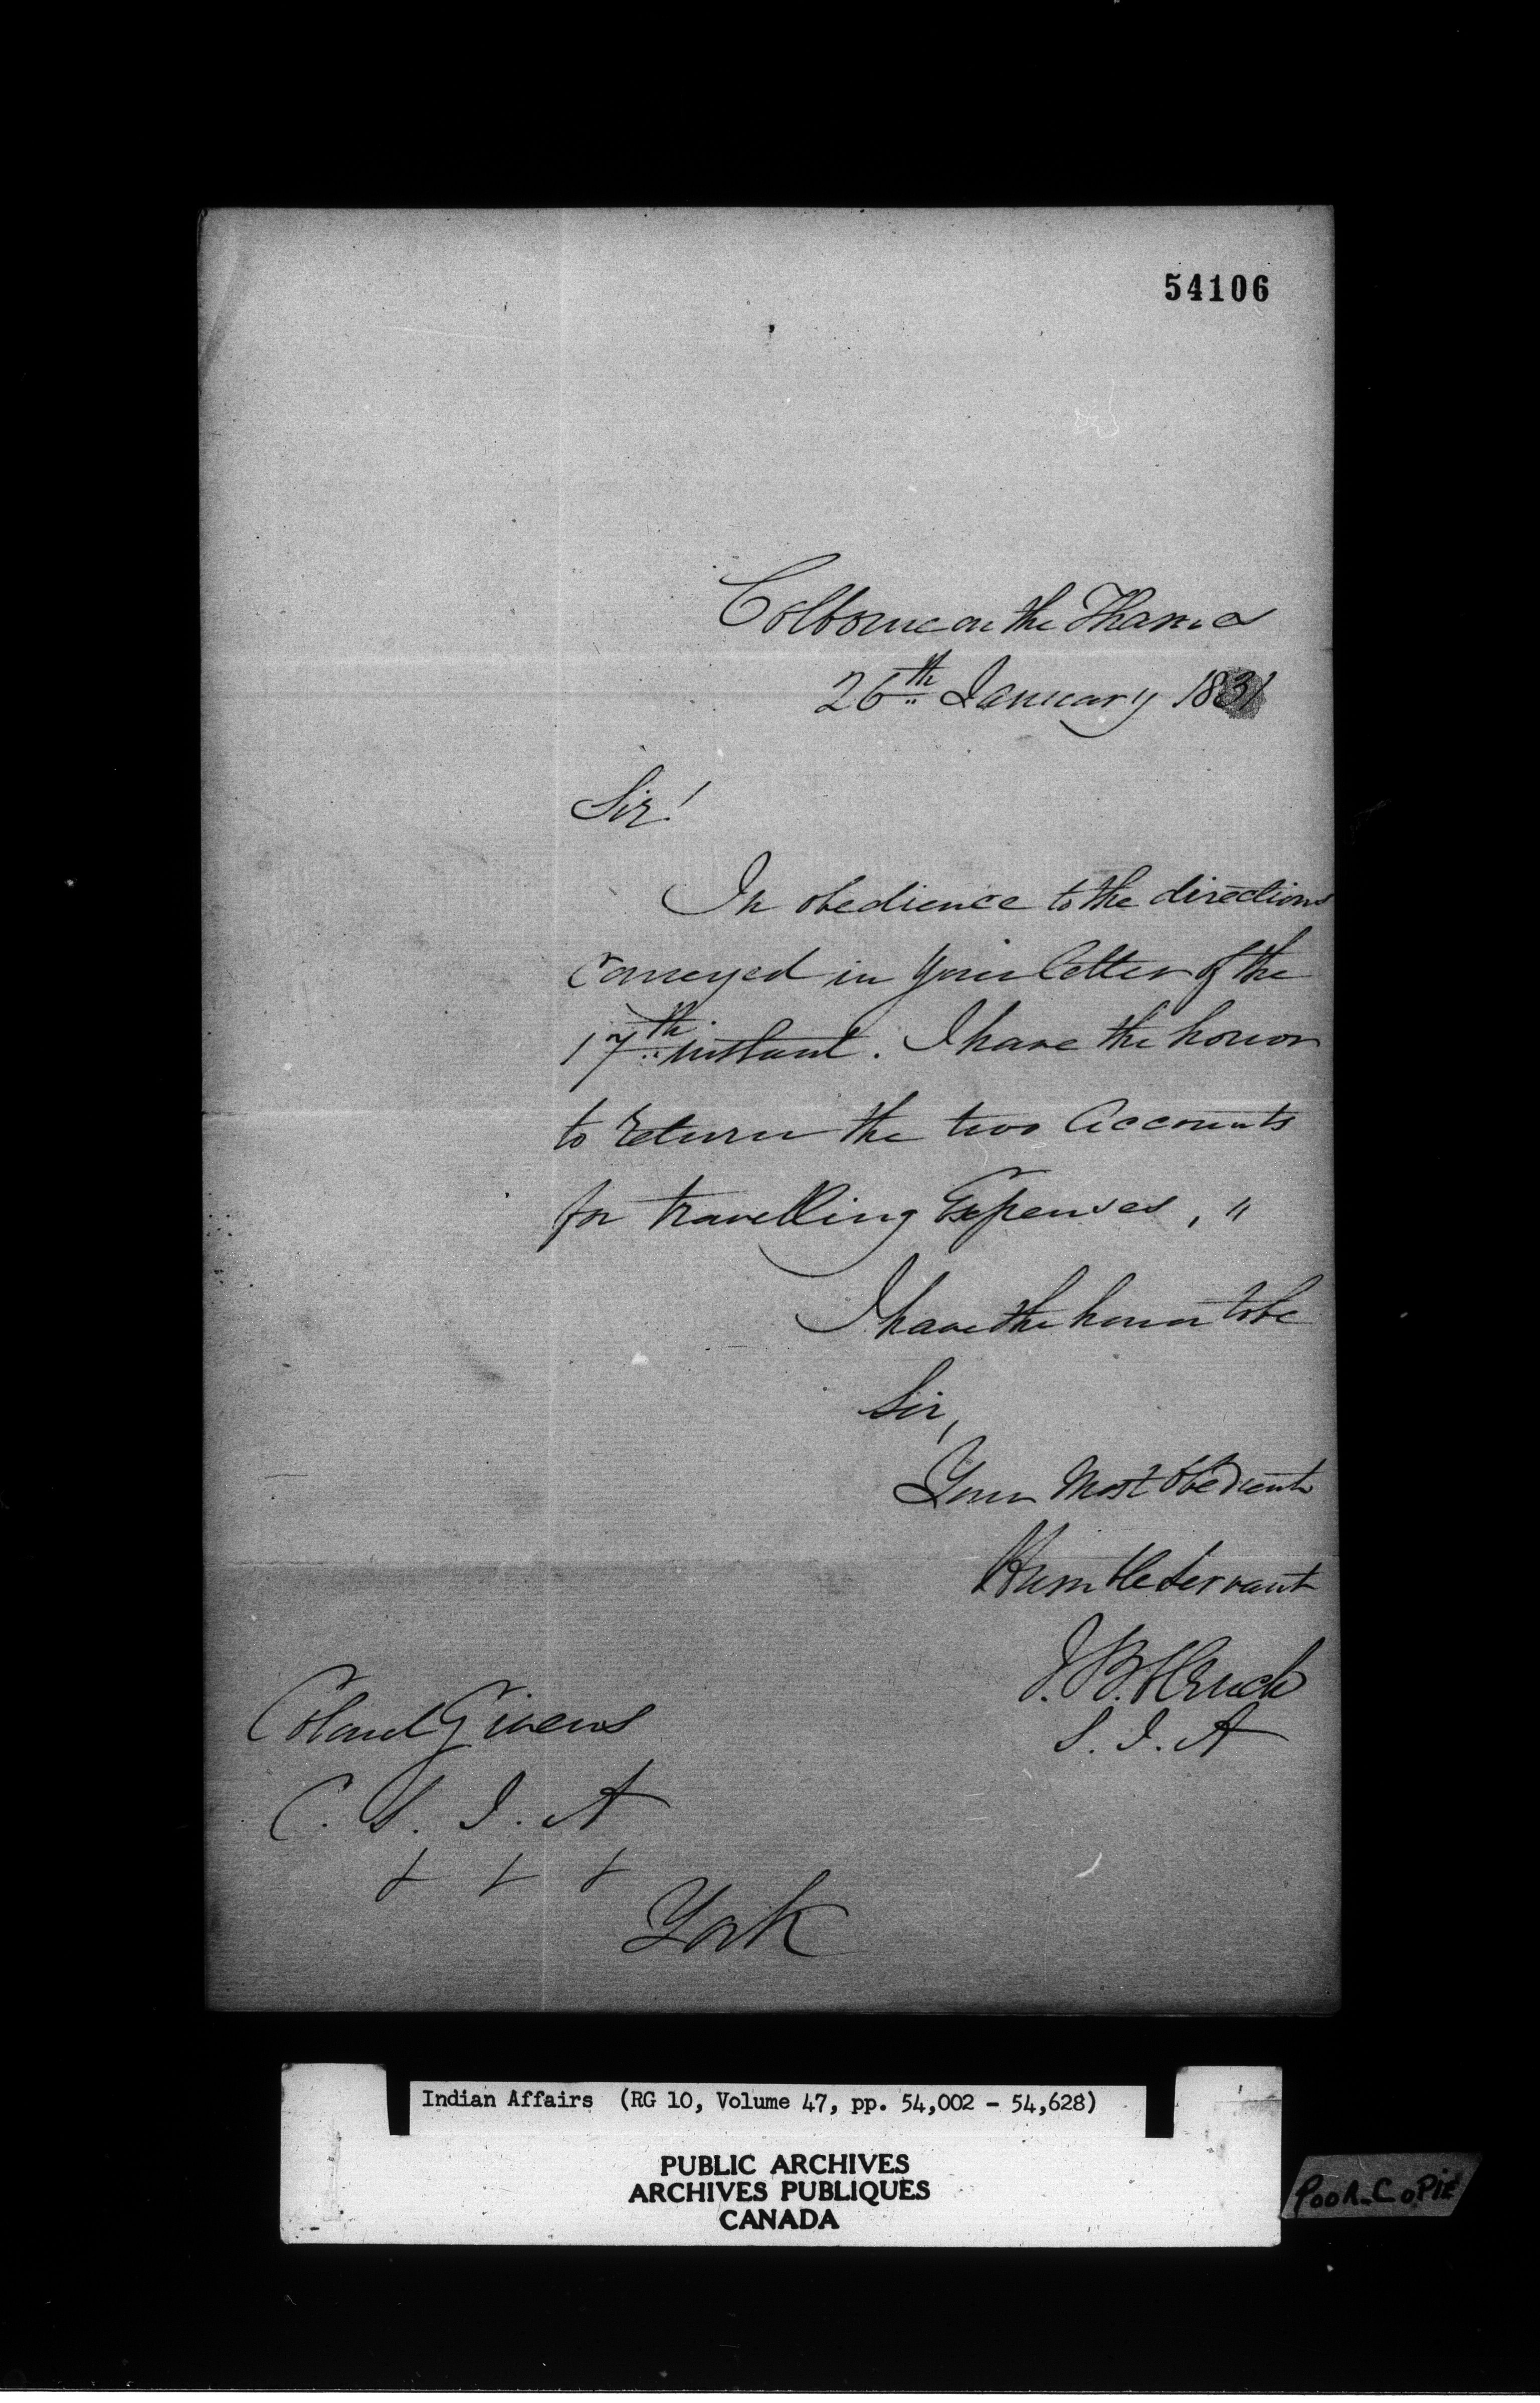 54106
Colborne on the Thames
26th January 1831
Sir!
In obedience to the directions
conveyed in your letter of the
17th instant. I have the honor
to return the two Accounts
for travelling Expenses, "
I have the honor to be
Sir,
Your Most Obedient
Humble Servant
J. B. Clench
S. I. A
Colonel Givens
C. S. I. A
+ + +
York
Indian Affairs (RG 10, Volume 47, pp. 54,002 - 54,628)
PUBLIC ARCHIVES
ARCHIVES PUBLIQUES
CANADA
POOR COPIE